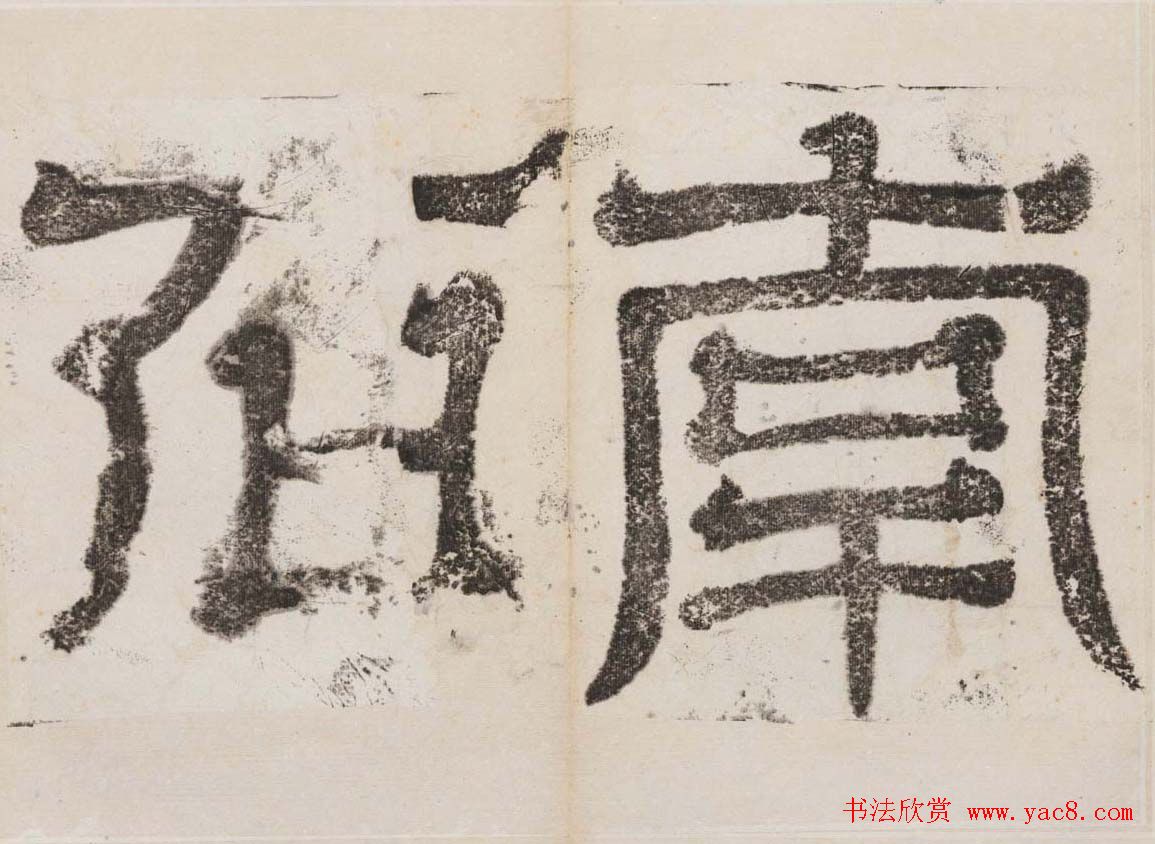 南
石
书法欣赏 www.yac8.com